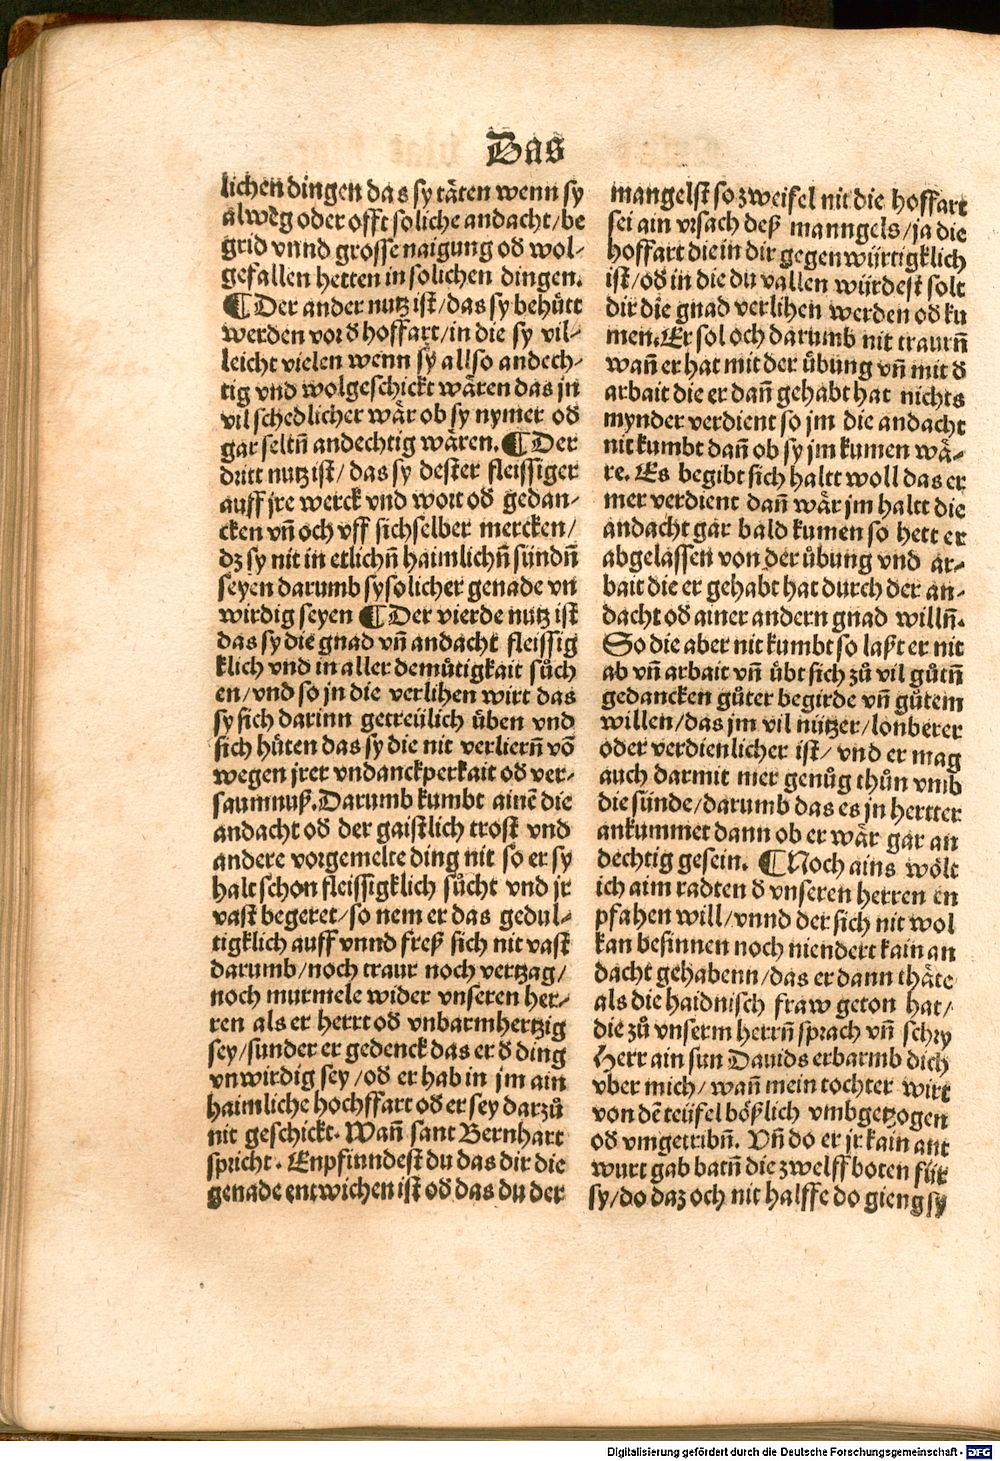 Das
lichen dingen das sy täten wenn sy
alweg oder offt soliche andacht/be
grid vnnd grosse naigung oð wol-
gefallen hetten in solichen dingen.
¶Der ander nutz ist/das sy behütt
werden vor ð hoffart/in die sy vil-
leicht vielen wenn sy allso andech-
tig vnd wolgeschickt wären das jn
vil schedlicher wär ob sy nymer oð
gar seltñ andechtig wären.¶Der
dritt nutz ist/das sy dester fleissiger
auff jre werck vnd wort oð gedan-
cken vñ och vff sichselber mercken/
dz sy nit in etlichñ haimlichñ sündñ
seyen darumb sy solicher genade vn
wirdig seyen ¶Der vierde nutz ist
das sy die gnad vñ andacht fleissig
klich vnd in aller demütigkait süch
en/vnd so jn die verlihen wirt das
sy sich darinn getreülich üben vnd
sich hüten das sy die nit verlierñ võ
wegen jrer vndanckperkait oð ver-
saumnuß.Darumb kumbt ainẽ die
andacht oð der gaistlich trost vnd
andere vorgemelte ding nit so er sy
halt schon fleissigklich sůcht vnd jr
vast begeret/so nem er das gedul-
tigklich auff vnnd freß sich nit vast
darumb/noch traur noch vertzag/
noch murmele wider vnseren her-
ren als er herrt oð vnbarmhertzig
sey/sunder er gedenck das er ð ding
vnwirdig sey/oð er hab in jm ain
haimliche hochffart oð er sey darzů
nit geschickt. Wañ sant Bernhart
spricht. Enpfinndest du das dir die
genade entwichen ist oð das du der
mangelst so zweifel nit die hoffart
sei ain vrsach deß manngels/ja die
hoffart die in dir gegenwürtigklich
ist/oð in die du vallen würdest solt
dir die gnad verlihen werden oð ku
men.Er sol och darumb nit traurñ
wañ er hat mit der übung vñ mit ð
arbait die er dañ gehabt hat nichts
mynder verdient so jm die andacht
nit kumbt dañ ob sy jm kumen wä-
re. Es begibt sich haltt woll das er
mer verdient dañ wär jm haltt die
andacht gar bald kumen so hett er
abgelassen von der übung vnd ar-
bait die er gehabt hat durch der an-
dacht oð ainer andern gnad willñ.
So die aber nit kumbt so laßt er nit
ab vñ arbait vñ übt sich zů vil gůtñ
gedancken gůter begirde vñ gůtem
willen/das jm vil nützer/lonberer
oder verdienlicher ist/ vnd er mag
auch darmit mer genůg thůn vmb
die sünde/darumb das es jn hertter
ankummet dann ob er wär gar an
dechtig gesein. ¶Noch ains wölt
ich aim radten ð vnseren herren en
pfahen will/vnnd der sich nit wol
kan besinnen noch niendert kain an
dacht gehabenn/das er dann thäte
als die haidnisch fraw geton hat/
die zů vnserm herrñ sprach vñ schry
Herr ain sun Dauids erbarmb dich
vber mich/ wañ mein tochter wirt
von dẽ teüfel bößlich vmbgetzogen
oð vmgetribñ. Vñ do er jr kain ant
wurt gab batñ die zwelff boten für
sy/do daz och nit halffe do gieng sy
Digitalisierung gefördert durch die Deutsche Forschungsgemeinschaft - DFG